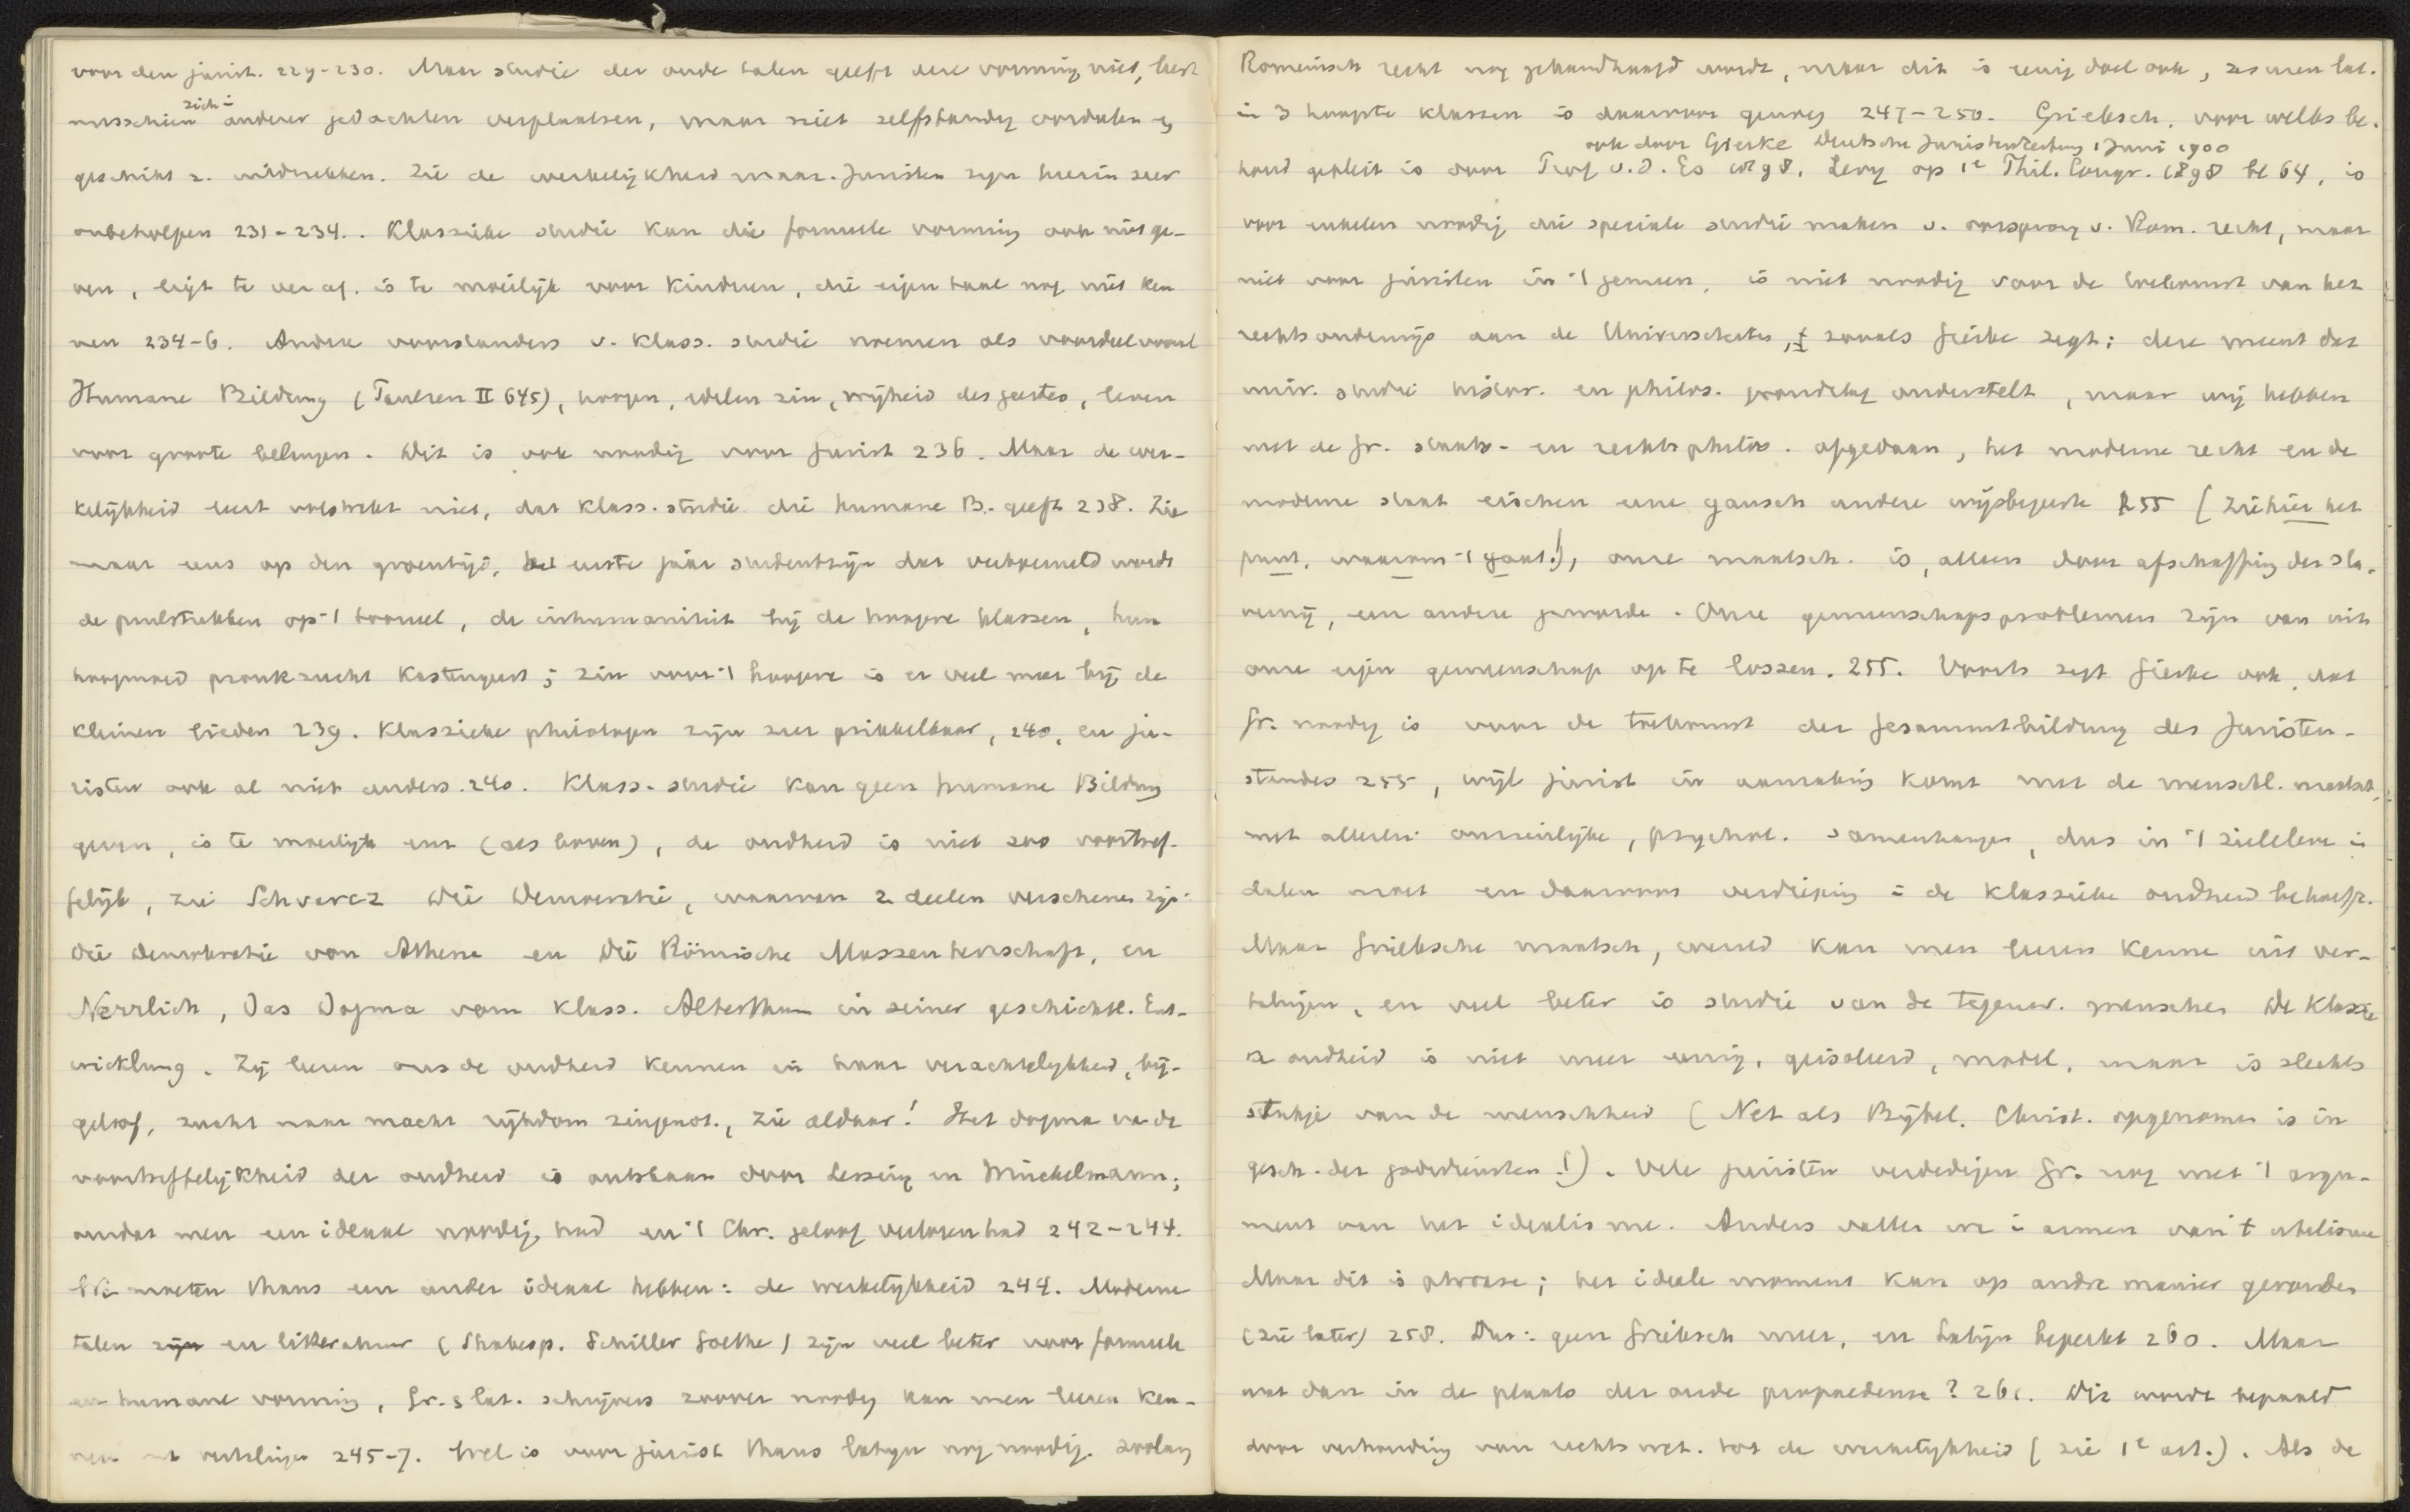 voor den jurist. 229-230. Maar studie der oude talen geeft deze vorming niet, leert
zich i
misschien anderer gedachten verplaatsen, maar niet zelfstandig oordeelen en
geschikt z. uitdrukken. Zie de werkelijkheid maar. Juristen zijn hierin zeer
onbeholpen 231-234. Klassieke studie kan die formeele vorming ook niet ge-
ven, ligt te ver af. is te moeilijk voor kinderen, die eigen taal nog niet ken
nen 234-6. Andere voorstanders v. klass. studie noemen als voordeel vooral
Humane Bildung (Paulsen II 645), hoogen, edelen zin, vrijheid des geestes, leven
voor groote belangen. Dit is ook noodig voor jurist 236. Maar de wer-
kelijkheid leert volstrekt niet, dat klass. studie die humane B. geeft 238. Zie
maar eens op den groentijd, het eerste jaar studentzijn dat verboemeld wordt
de peulstukken op 't tooneel, de inhumaniteit bij de hoogere klassen, hun
hoogmoed pronkzucht kastengeest; zin voor 't hoogere is er veel meer bij de
kleinen lieden 239. Klassieke philologen zijn zeer prikkelbaar, 240, en ju-
risten ook al niet anders. 240. Klass. studie kan geen humane Bildung
geven, is te moeilijk enz (als boven), de oudheid is niet zoo voortref-
felijk, zie Schvarcz Die Demokratie, waarvan 2 deelen verschenen zijn:
Die Demokratie von Athene en Die Römische Massenherrschaft, en
Nerrlich, Das Dogma vom klass. Alterthum in seiner geschichtl. Ent-
wicklung. Zij leeren ons de oudheid kennen in haar verachtelijkheid, bij-
geloof, zucht naar macht rijkdom zingenot., zie aldaar! Het dogma va de
voortreffelijkheid der oudheid is ontstaan door Lessing en Winckelmann;
omdat men een ideaal noodig had en 't Chr. geloof verloren had 242-244.
We moeten thans een ander ideaal hebben: de werkelijkheid 244. Moderne
talen zijn en litteratuur (Shakesp. Schiller Goethe) zijn veel beter voor formeele
en humane vorming, Gr. & Lat. schrijvers zoover noodig kan men leeren ken-
nen uit vertalingen 245-7. Wel is voor jurist thans latijn nog noodig. zoolang
Romeinsch recht nog gehandhaafd wordt, maar dit is eenig doel ook, zes uren lat.
in 3 hoogste klassen is daarvoor genoeg 247-250. Grieksch, voor welks be-
ook door Gierke Deutsche Juristenzeitung 1 Juni 1900
houd gepleit is door Prof v.d. Es 1898, Levy op 1e Phil. Congr. 1898 bl 64, is
voor enkelen noodig die speciale studie maken v. oorsprong v. Rom. recht, maar
niet voor juristen in 't gemeen, is niet noodig voor de toekomst van het
rechtsonderwijs aan de Universiteiten, zooals Gierke zegt; deze meent dat
univ. studie histor. en philos. grondslag onderstelt, maar wij hebben
met de Gr. staats- en rechtsphilos. afgedaan, het moderne recht en de
moderne staat eischen eene gansch andere wijsbegeerte 255 (Ziehier het
punt, waarom 't gaat!), onze maatsch. is, alleen door afschaffing der sla-
vernij, een andere geworde. Onze gemeenschapsproblemen zijn van uit
onze eigen gemeenschap op te lossen. 255. Voorts zegt Gierke ook, dat
Gr. noodig is voor de toekomst der Gesammtbildung des Juristen-
standes 255, wijl jurist in aanraking komt met de menschl. maatsch.,
met allerlei onzinlijke, psychol. samenhangen, dus in 't zieleleven in
dalen moet en daarvoor verdieping in de klassieke oudheid behoeft.
Maar Grieksche maatsch, wereld kan men leeren kennen uit ver-
talingen, en veel beter is studie van de tegenw. menschen De klassie
ke oudheid is niet meer eenig, geisoleerd, model, maar is slechts
stukje van de menschheid (Net als Bijbel. Christ. opgenomen is in
gesch. der godsdiensten!). Vele juristen verdedigen Gr. nog met 't argu-
ment van het idealisme. Anders vallen we i armen van 't realisme
Maar dit is phrase; het ideale moment kan op andre manier gevonden
(zie later) 258. Dus: geen Grieksch meer, en Latijn beperkt 260. Maar
wat dan in de plaats der oude propaedeuse? 261. Dit wordt bepaald
door verhouding van rechtswet. tot de werkelijkheid (zie 1e art.). Als de